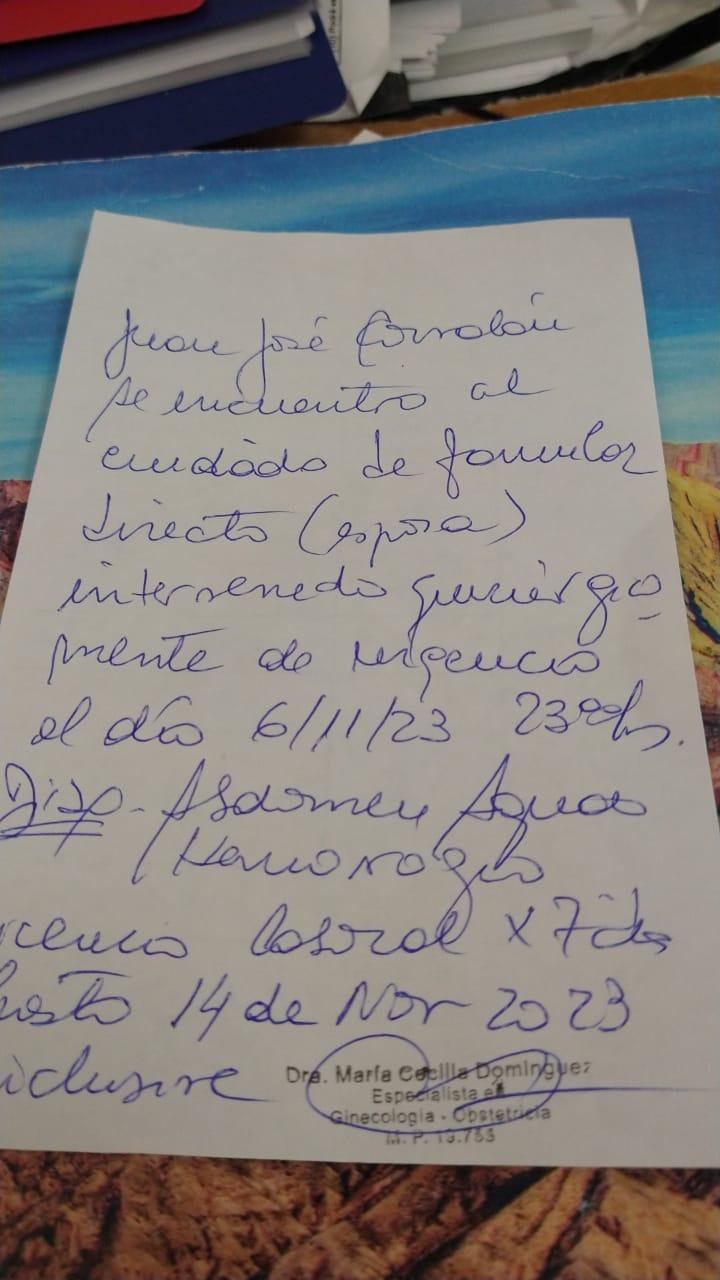 Juan José Corvalán
se encuentra al
cuidado de familiar
directo (esposa)
intervenida quirúrgica
mente de urgencia
el día 6/11/23 23 hs.
Diag. Abdomen Agudo
Hemorragia
licencia laboral x 7 ds
hasta 14 de Nov 2023
inclusive
Dra. María Cecilia Dominguez
Especialista en
Ginecología - Obstetricia
M. P. 13.753